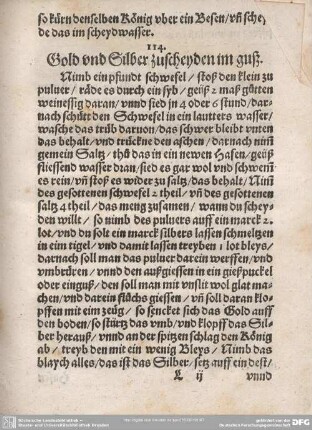 so kürn denselben König vber ein Besen/ vñ sche/
de das im scheydwasser.
114.
Gold vnd Silber zuscheyden im guß.
Nimb ein pfundt schwefel / stoß den klein zu
puluer / räde es durch ein syb / geüß 2 maß gůtten
weinessig daran/ vnnd sied in 4 oder 6 stund/ dar-
nach schütt den Schwefel in ein lautters wasser/
wasche das trüb daruon/ das schwer bleibt vnten
das behalt / vnd trückne den aschen / darnach nim̃
gemein Saltz / thů das in ein newen Hafen/ geüß
fliessend wasser dran/ sied es gar wol vnd schwem̃
es rein/ vñ stoß es wider zu saltz/ das behalt/ Nim̃
des gesottenen schwefel 2 theil / vñ des gesottenen
saltz 4 theil / das meng zusamen / wann du schey-
den wilt / so nimb des puluers auff ein marck 2.
lot/ vnd du solt ein marck silbers lassen schmeltzen
in eim tigel/ vnd damit lassen treyben 1 lot bleys/
darnach soll man das puluer darein werffen/ vnd
vmbrüren / vnnd den außgiessen in ein gießpuckel
oder einguß/ den soll man mit vnslit wol glat ma-
chen/ vnd darein flůchs giessen / vñ soll daran klo-
pffen mit eim zeüg / so sencket sich das Gold auff
den boden/ so stürtz das vmb/ vnd klopff das Sil-
ber herauß/ vnnd an der spitzen schlag den König
ab / treyb den mit ein wenig Bleys / Nimb das
blaych alles/ das ist das Silber/ setz auff ein test/
L ij vnnd